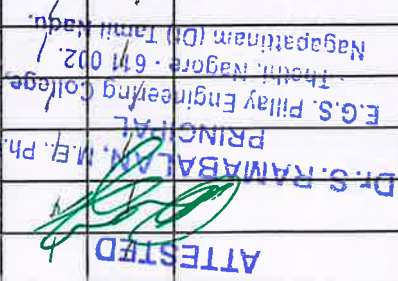 ATTESTED
Dr.S. RAMABALAN, M.E., Ph.
PRINCIPAL
E.G.S. Pillay Engineering College,
Thethi, Nagore - 611 002.
Nagapattinam (Dt) Tamil Nadu.